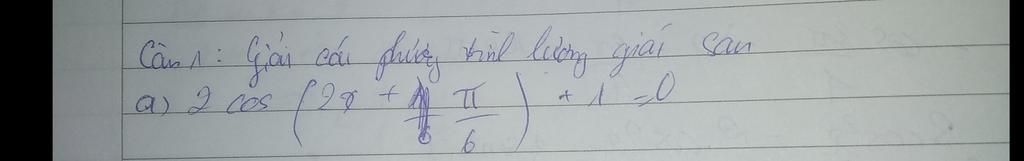 Câu 1: Giải các phương trình lượng giác sau
a) 2 cos (2x + π/6) + 1 = 0